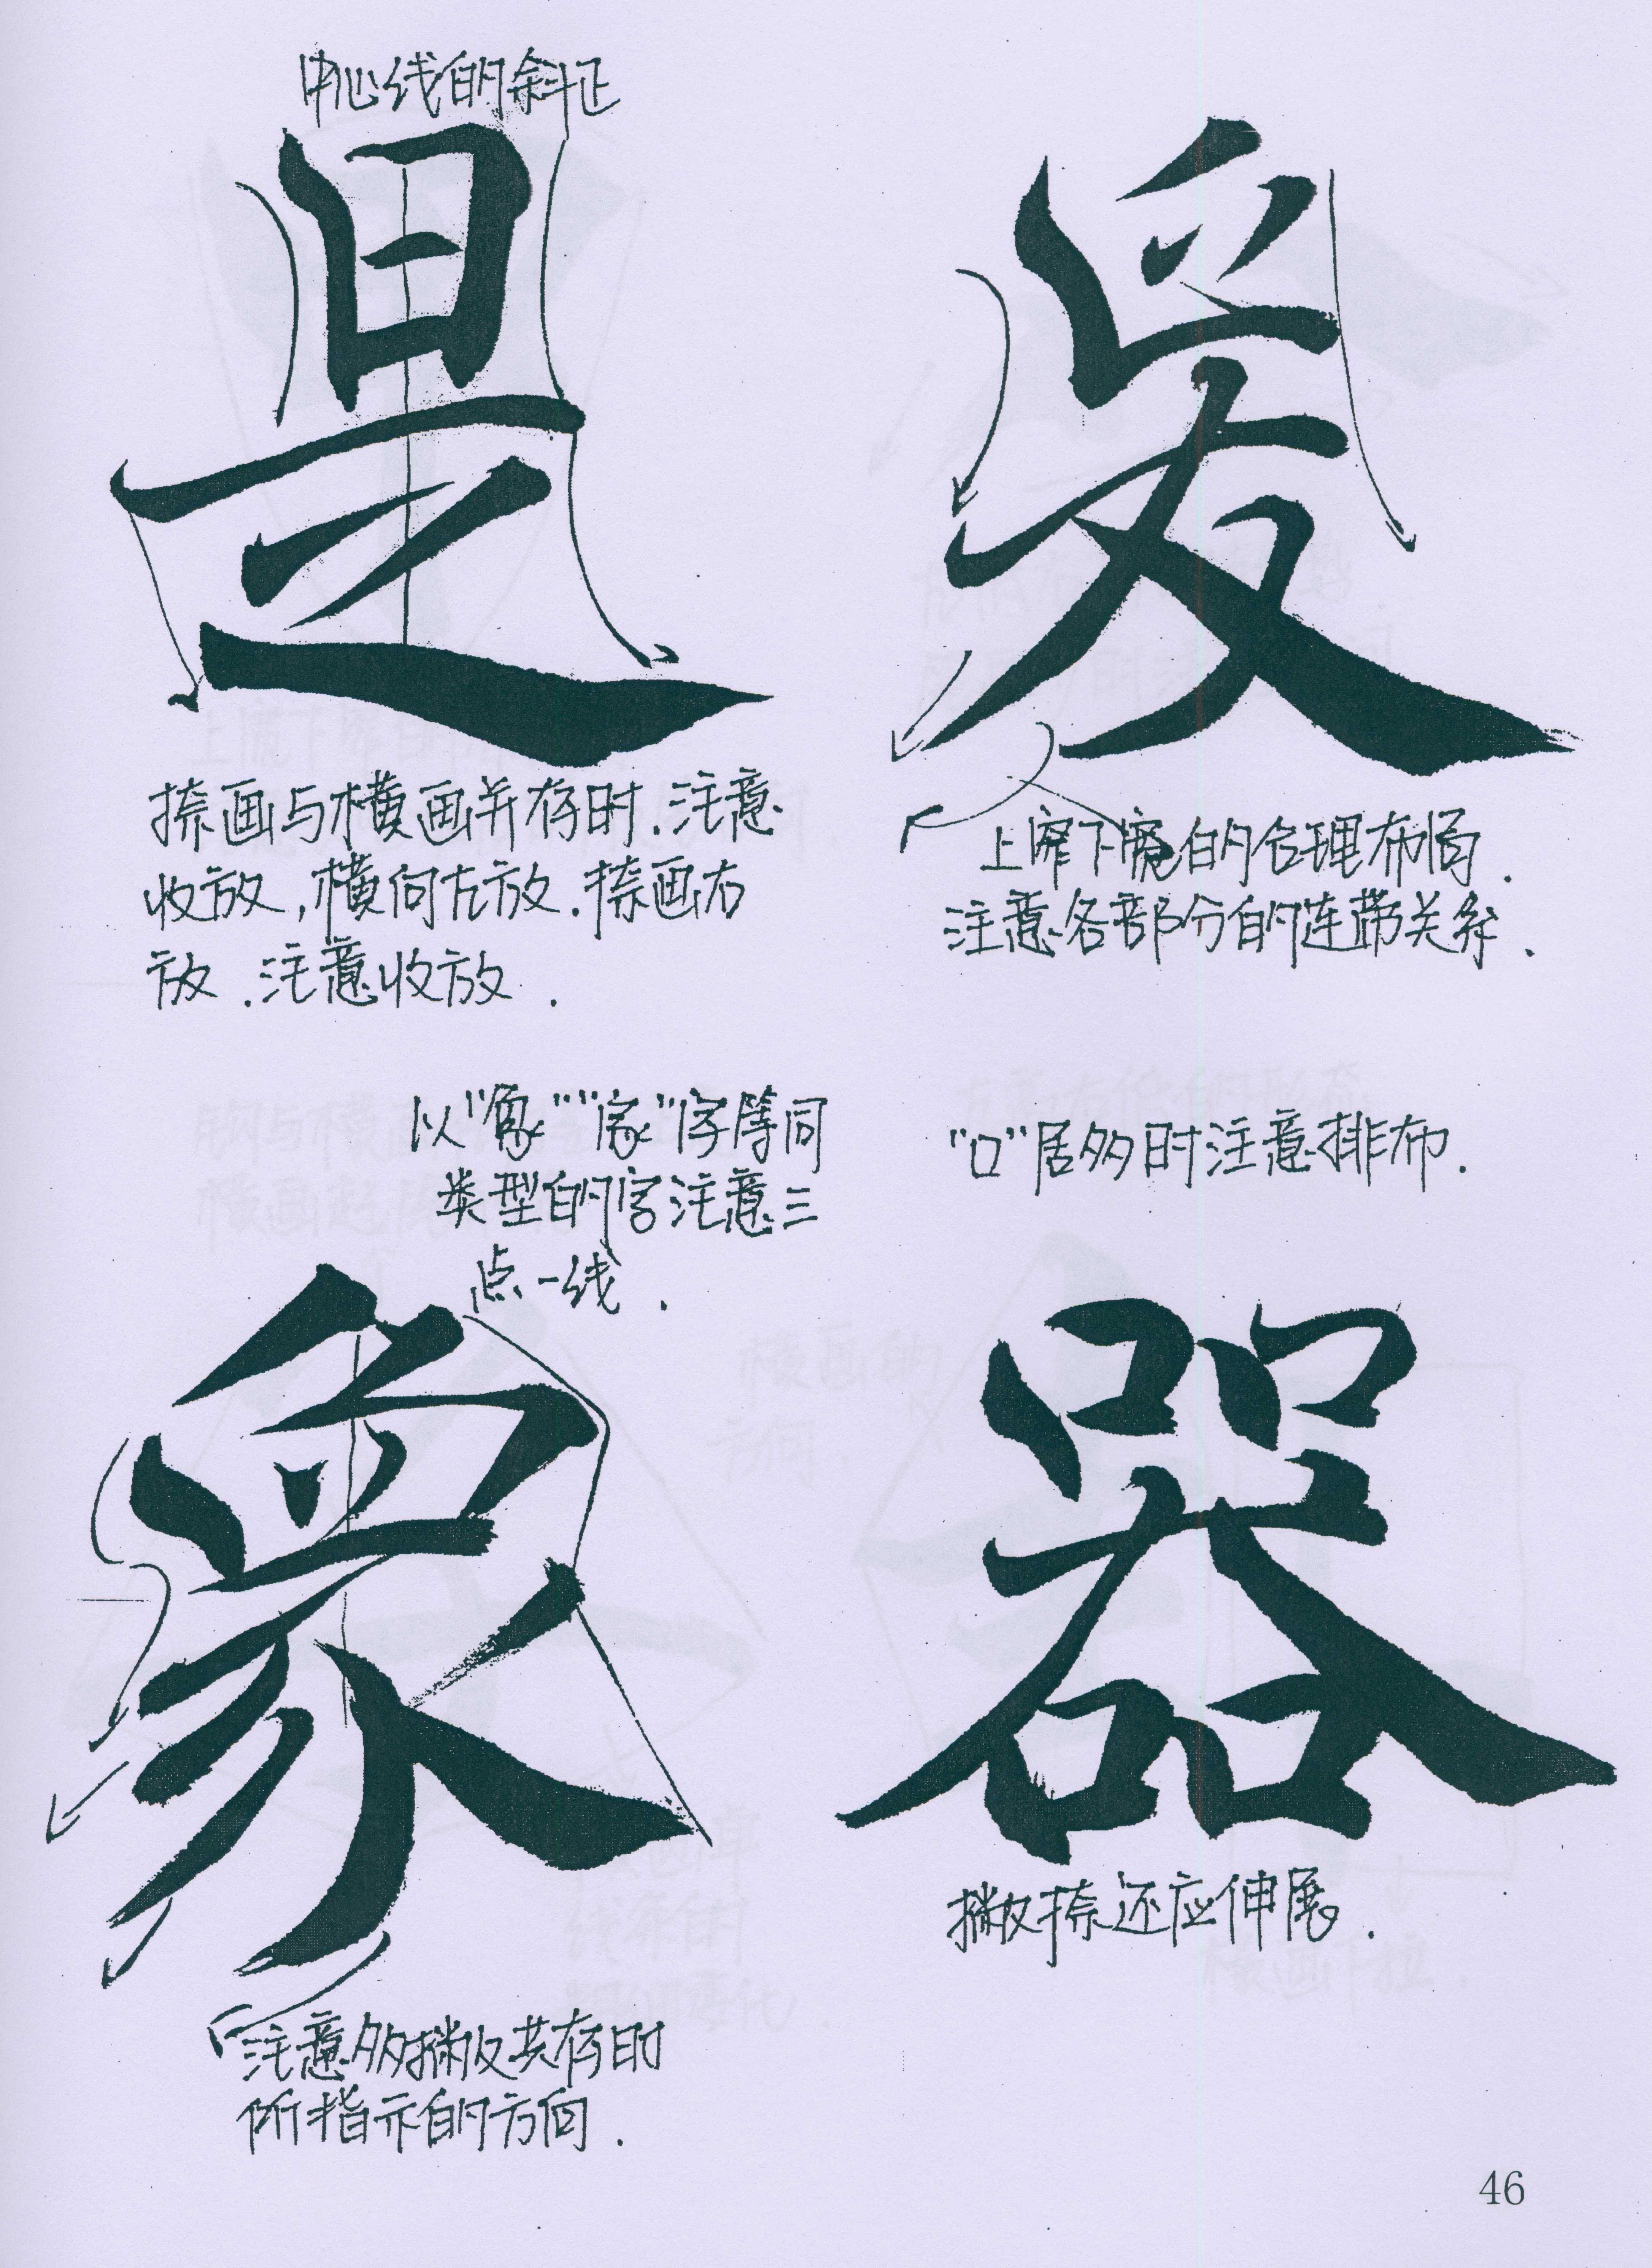 中心线的斜正
是
捺画与横画并存时.注意
收放,横向左放.捺画右
放.注意收放.
爰
上窄下宽的合理布局.
注意各部分的连带关系.
以“象”“家”字等同
类型的字注意三
点一线.
象
注意多撇共存时
所指示的方向.
“口”居多时注意排布.
器
撇捺还应伸展.
46